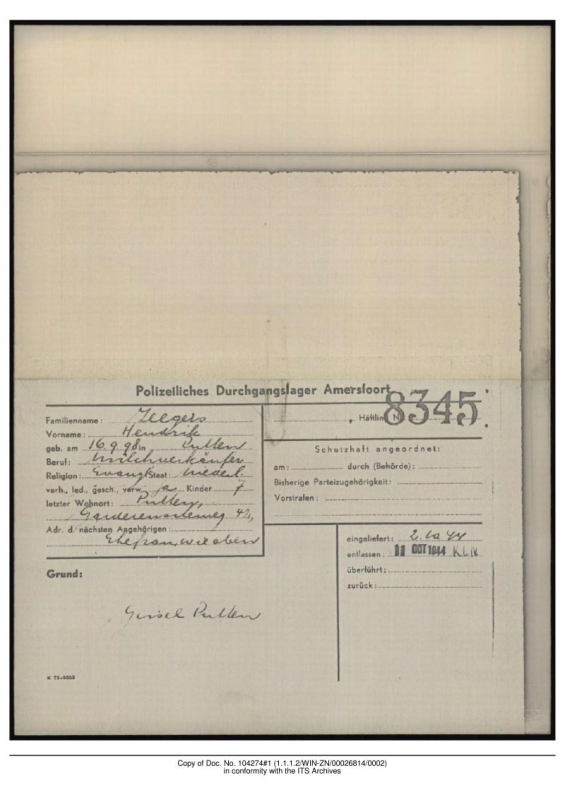 Polizeiliches Durchgangslager Amersfoort
Familienname: Zeegers
Vorname: Hendrik
geb. am 16.9.98 in Putten
Beruf: Milchverkäufer
Religion: Evang. Staat: Niederl.
verh., led., gesch., verw. ja Kinder 7
letzter Wohnort: Putten,
Adr. d. nächsten Angehörigen
Ehefrau, wie oben
, Häftlings Nr. 8345
Schutzhaft angeordnet:
am: durch (Behörde):
Bisherige Parteizugehörigkeit:
Vorstrafen:
eingeliefert: 2.10.44
entlassen: 11 OCT 1944 K.L.N.
überführt:
zurück:
Grund:
Geisel Putten
Copy of Doc. No. 104274#1 (1.1.1.2/WIN-ZN/00026814/0002)
in conformity with the ITS Archives